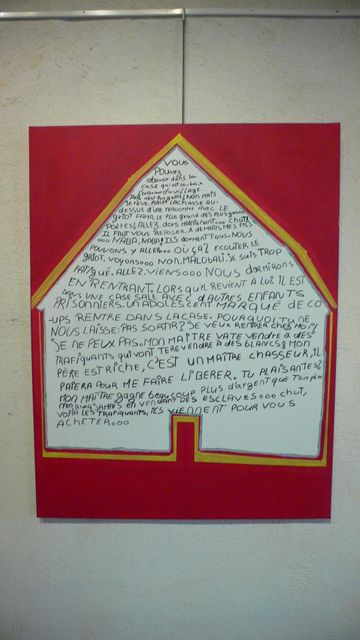 VOUS
POUVEZ
dormir dans la
CASE qui est là-bas, à
POUVEZ. ALLEZ, dors MAINTENANT... CHUT,
IL FAUT VOUS REPOSER. À DEMAIN, MES FILS
... NABA, NABA! ILS dorment TOUS. NOUS
POUVONS y ALLER... OÙ ÇA? ECOUTER LE
griot, VOYONS... NON, MALOBALI. JE SUIS TROP
FATIGUÉ. ALLEZ. VIENS... NOUS dormirons
EN RENTRANT. LORSQU'IL REVIENT À LUI, IL EST
DANS UNE CASE SALE AVEC d'AUTRES ENFANTS
PRISONNIERS. UN ADOLESCENT MARQUÉ DE CO
-UPS RENTRE DANS LA CASE. POURQUOI TU NE
NOUS LAISSE PAS SORTIR? JE VEUX RENTRER CHEZ MOI!
JE NE PEUX PAS. MON MAÎTRE VA TE VENDRE À DES
TRAFIQUANTS QUI VONT TE REVENDRE À DES BLANCS. MON
PÈRE EST RICHE, C'EST UN MAÎTRE CHASSEUR, IL
PAIERA POUR ME FAIRE LIBERER. TU PLAISANTES?
MON MAÎTRE GAGNE BEAUCOUP PLUS d'ARGENT QUE TON père
n'en aura JAMAIS EN VENDANT DES ESCLAVES... CHUT,
VOILÀ LES TRAFIQUANTS, ILS VIENNENT POUR VOUS
ACHETER...